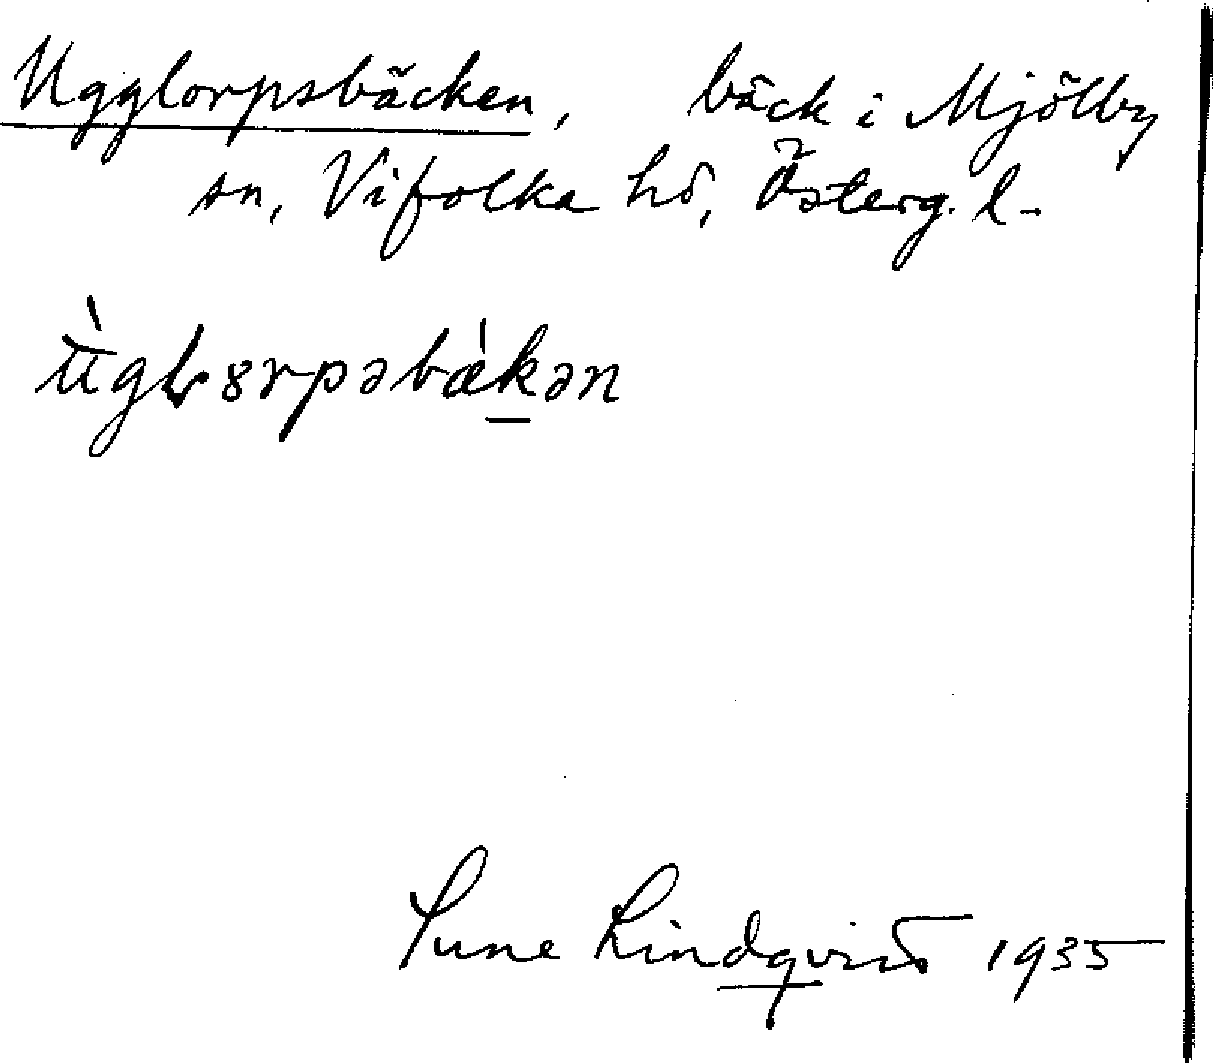 Ugglorpsbäcken, bäck i Mjölby
sn, Vifolka hd, Österg. l.
ùglorpəbæ̀kən
Sune Lindqvist 1935